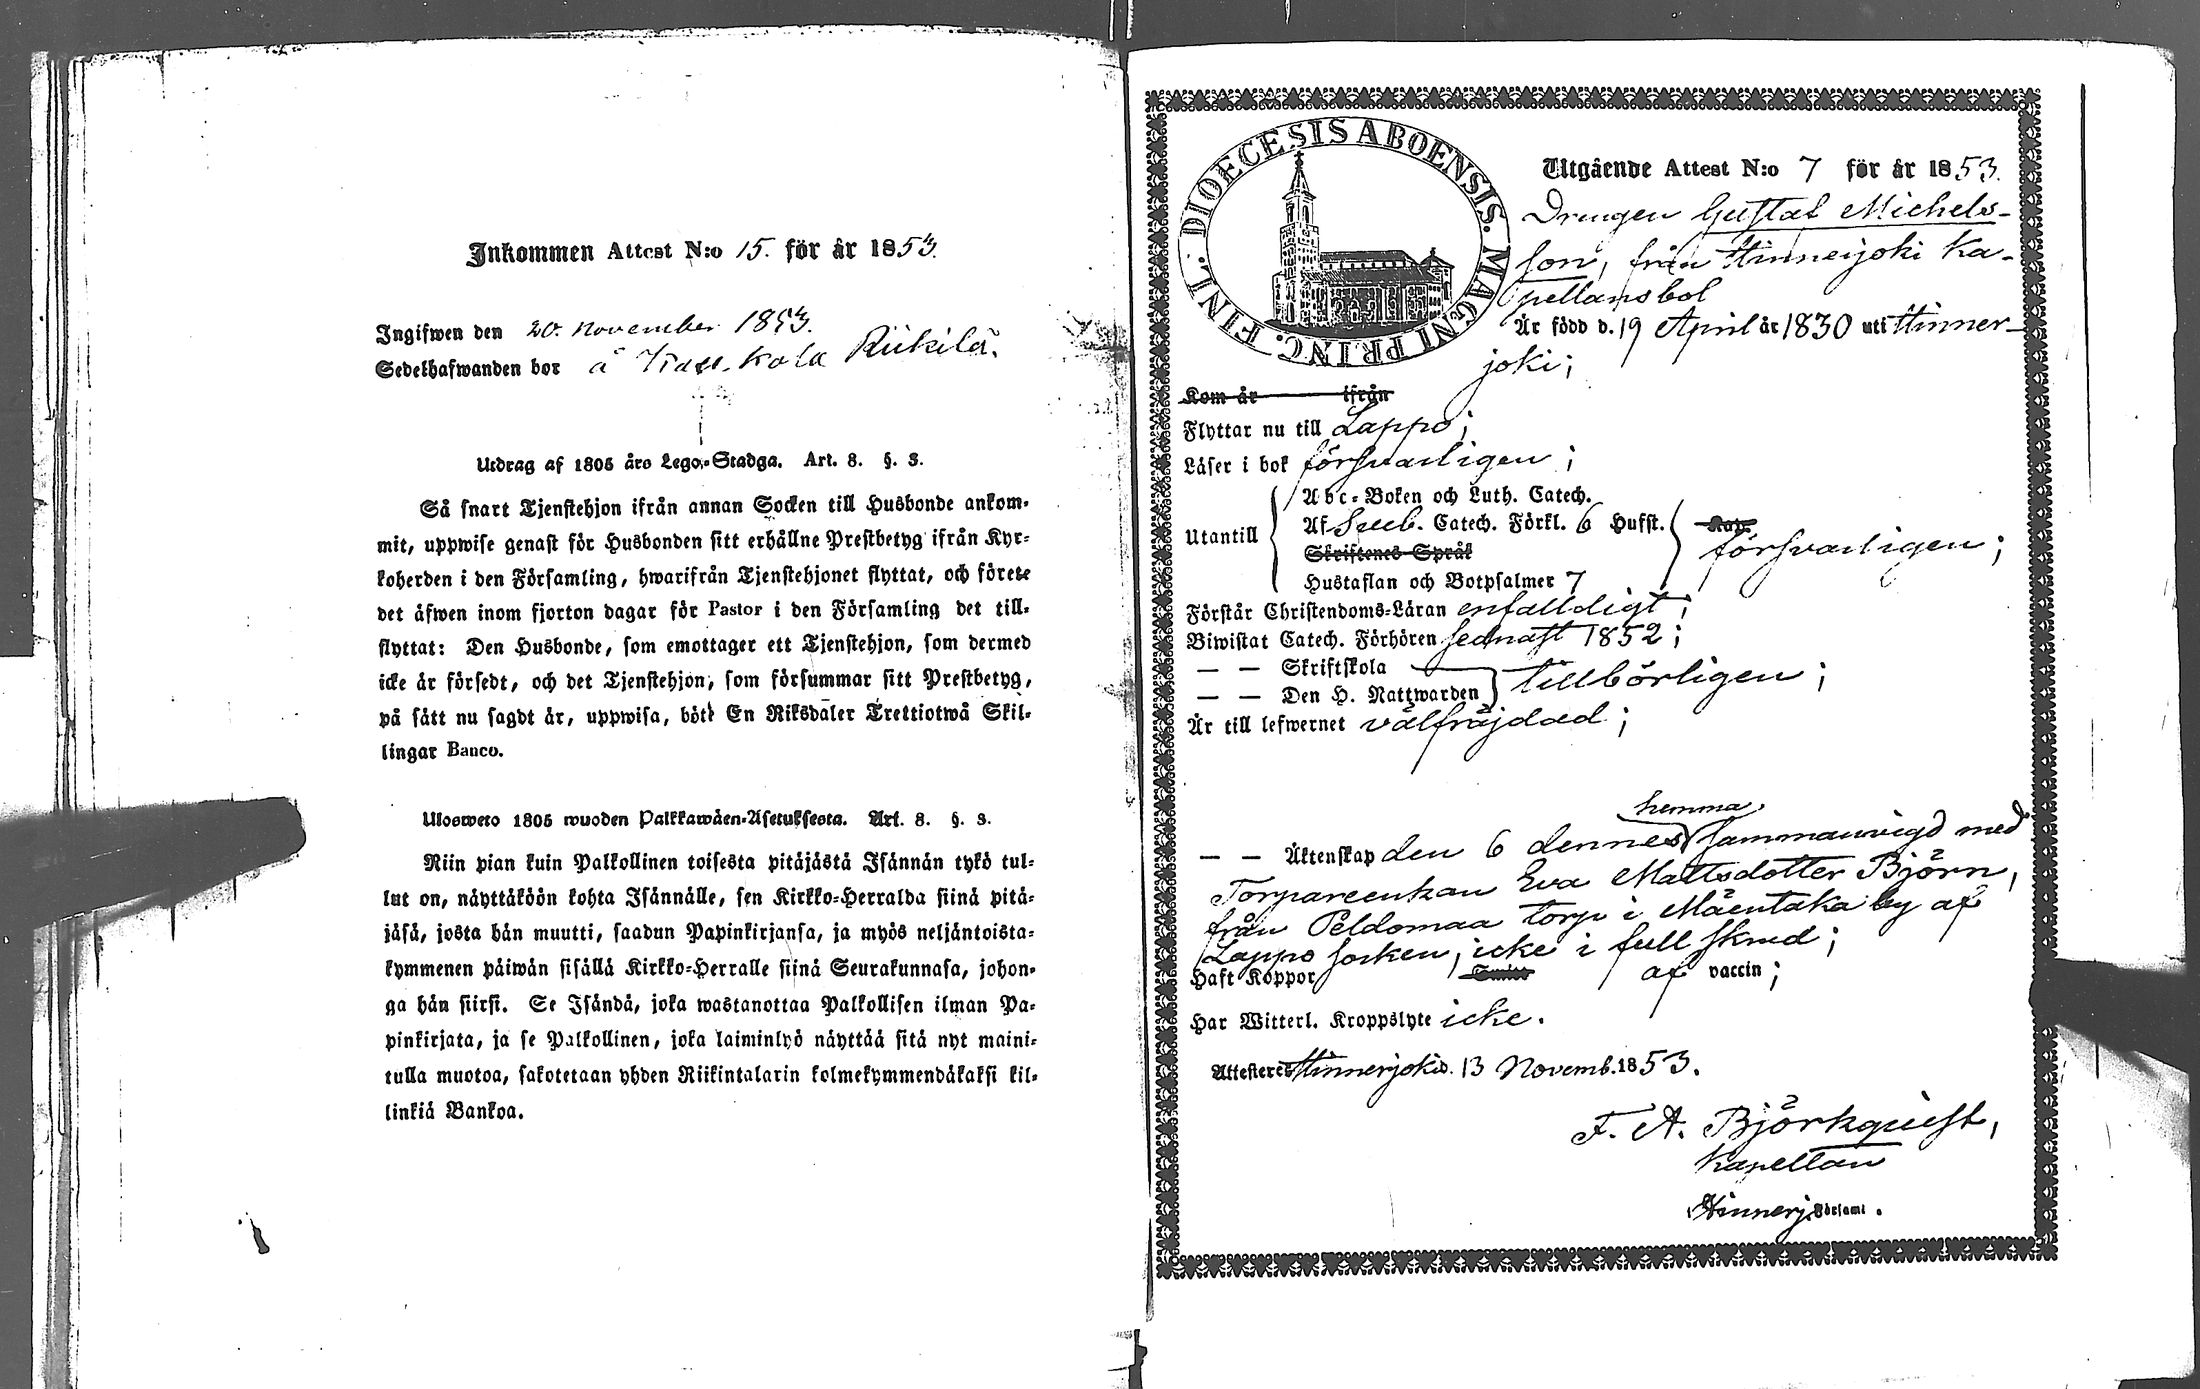 Inkommen Attest N:o 15. för år 1853.
Ingifwen den 20. november 1853.
Sedelhafwanden bor å Kola Riikilä.
Utdrag af 1805 års Lego-Stadga. Art. 8. §. 3.
Så snart Tjenstehjon ifrån annan Socken till Husbonde ankom-
mit, uppwise genast för Husbonden sitt erhållne Prestbetyg ifrån Kyr-
koherden i den Församling, hwarifrån Tjenstehjonet flyttat, och förete
det äfwen inom fjorton dagar för Pastor i den Församling det till-
flyttat: Den Husbonde, som emottager ett Tjenstehjon, som dermed
icke är försedt, och det Tjenstehjon, som försummar sitt Prestbetyg,
på sätt nu sagdt är, uppwisa, böte En Riksdaler Trettiotwå Skil-
lingar Banco.
Ulosweto 1805 wuoden Palkkawäen-Asetuksesta. Art. 8. §. 3.
Niin pian kuin Palkollinen toisesta pitäjästä Isännän tykö tul-
lut on, näyttäköön kohta Isännälle, sen Kirkko-Herralda siinä pitä-
jäsä, josta hän muutti, saadun Papinkirjansa, ja myös neljäntoista-
kymmenen päiwän sisällä Kirkko-Herralle siinä Seurakunnasa, johon-
ga hän siirsi. Se Isändä, joka wastanottaa Palkollisen ilman Pa-
pinkirjata, ja se Palkollinen, joka laiminlyö näyttää sitä nyt maini-
tulla muotoa, sakotetaan yhden Riikintalarin kolmekymmendäkaksi kil-
linkiä Bankoa.
DIOECESIS ABOENSIS. MAGNI PRINC. FINL.
Utgående Attest N:o 7 för år 1853.
Drengen Gustaf Michels-
son, från Hinnerjoki Ka-
pellansbol
Är född d. 19 April år 1830 uti Hinner-
joki;
Kom år ifrån
Flyttar nu till Lappo;
Läser i bok försvarligen;
Utantill
Abc-Boken och Luth. Catech.
Af Sveb. Catech. Förkl. 6 Hufst.
Skriftenes Språk
Hustaflan och Botpsalmer 7
försvarligen;
Förstår Christendoms-Läran enfalldigt;
Biwistat Catech. Förhören sednast 1852;
— — Skriftskola
— — Den H. Nattwarden
tillbörligen;
Är till lefwernet välfräjdad;
hemma
— — Äktenskap den 6 dennes sammanvigd med
Torpareenkan Eva Mattsdotter Björn,
från Peldomaa torp i Mäentaka by af
Lappo socken, icke i full skrud;
Haft Koppor af vaccin;
Har Witterl. Kroppslyte icke.
Attesteres Hinnerjoki d. 13 Novemb. 1853.
F. A. Björkquist,
Kapellan
Hinnerj. Församl.